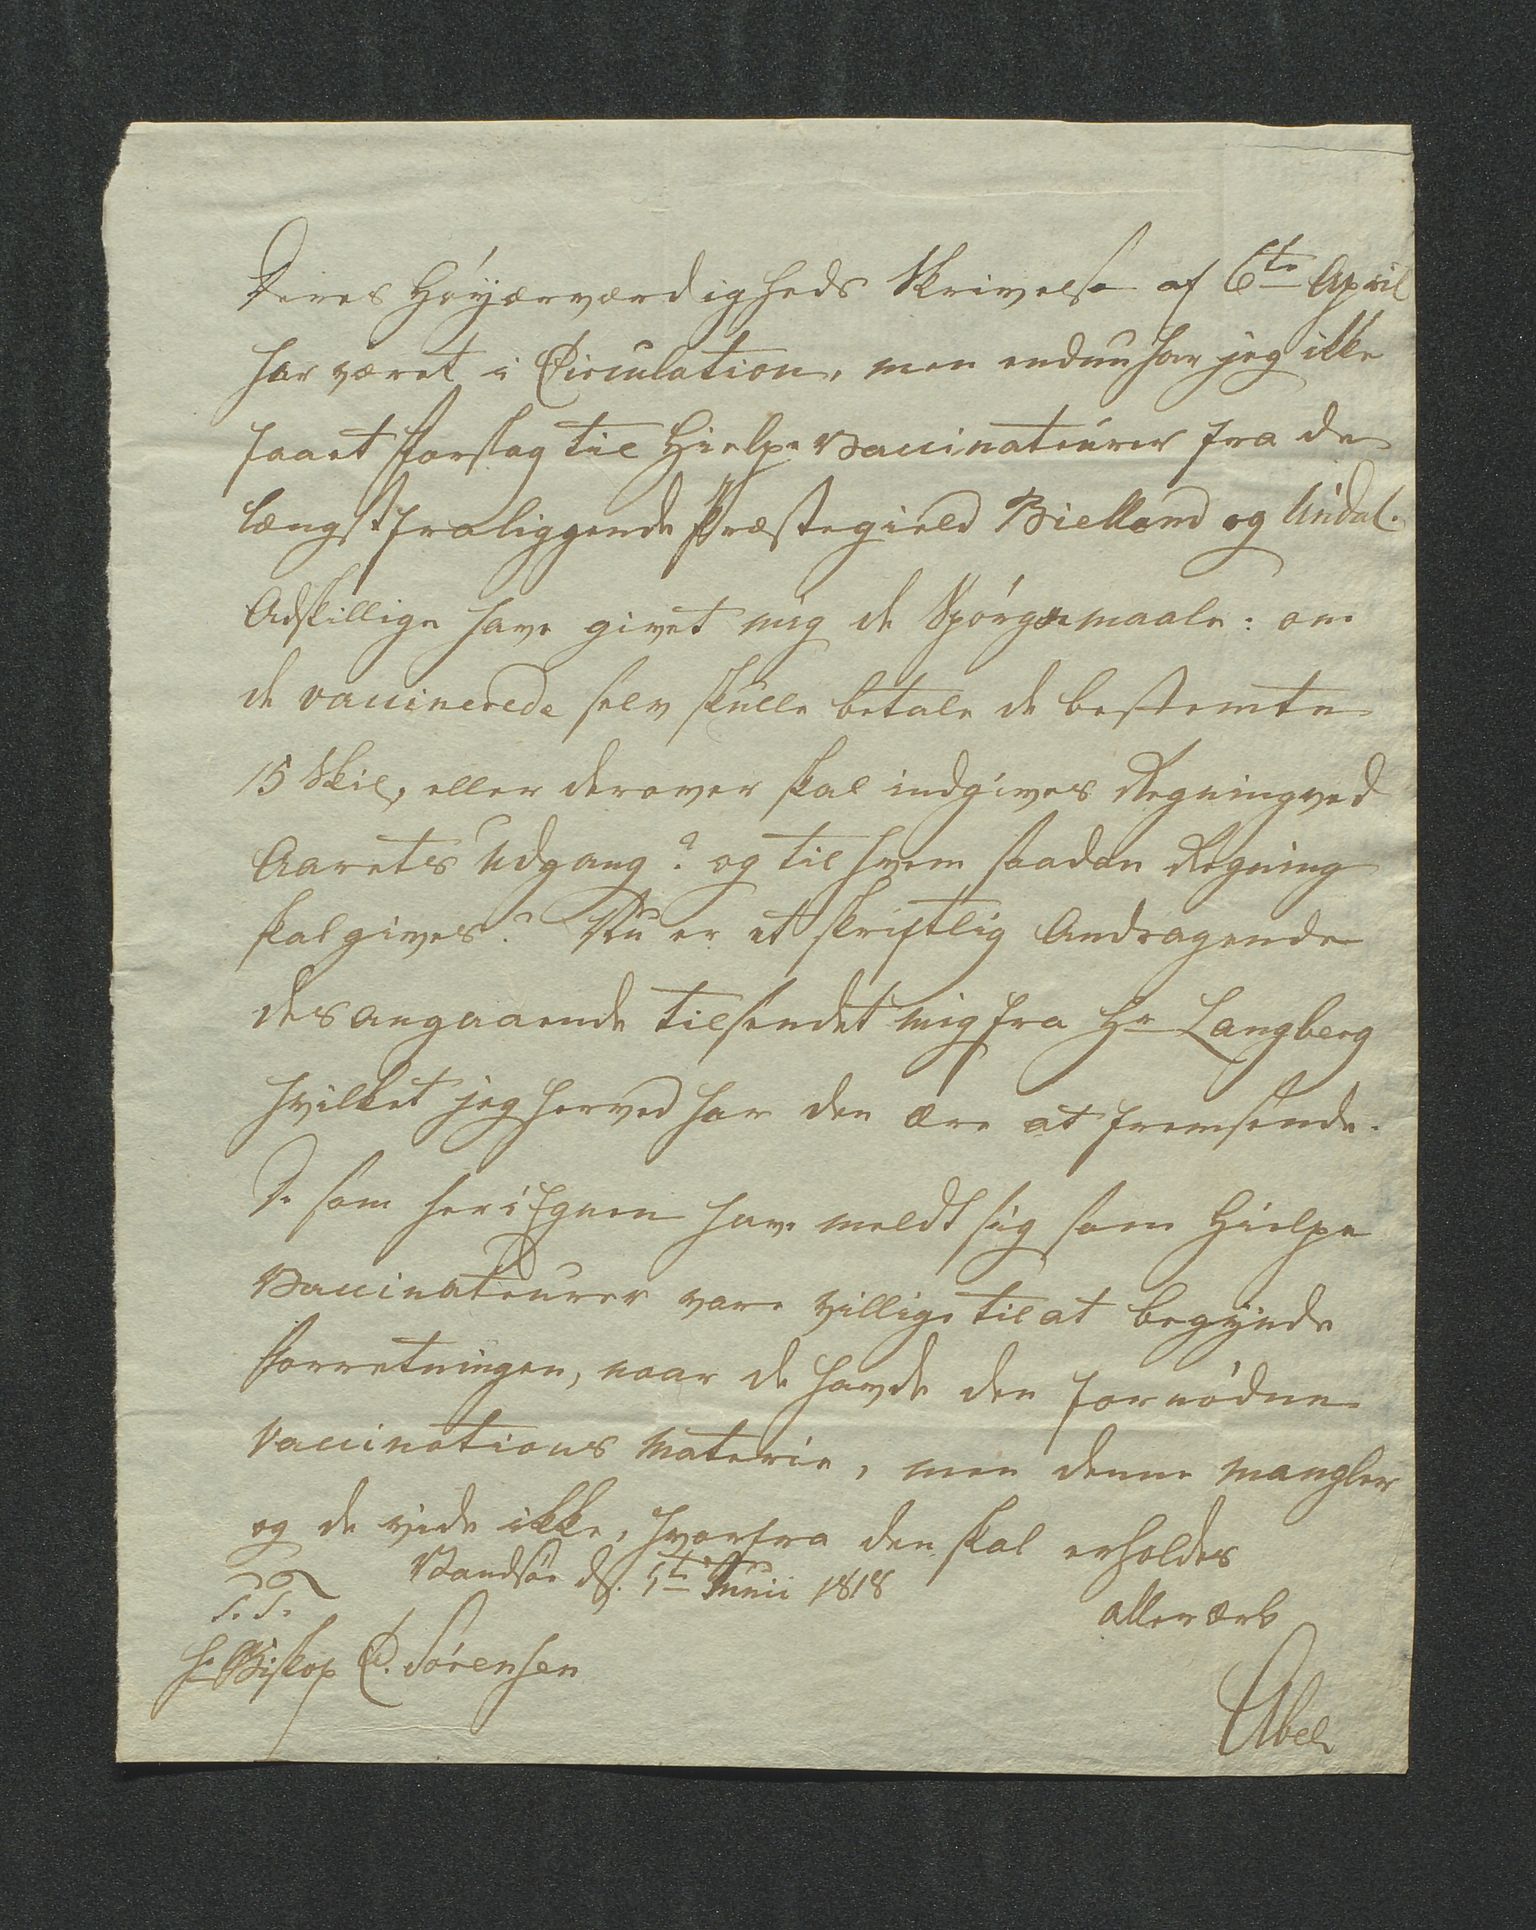 Deres Høyærværdigheds Skrivelse af 6te April
har været i Circulation, men endnu har jeg ikke
faaet Forslag til Hielpe Vaccinateurer fra de
længst fraliggende Præstegield Bielland og Undal.
Adskillige have givet mig de Spørgsmaale: om
de vaccinerede selv skulle betale de bestemte
15 Skil, eller derover skal indgives Regning ved
Aarets Udgang? og til hvem saadan Regning
skal gives? Nu er et skriftlig Andragende
desangaaende tilsendet mig fra Hr Langberg
hvilket jeg herved har den ære at fremsende.
De som her i Egnen have meldt sig som Hielpe
Vaccinateurer vare villige til at begynde
Forretningen, naar de havde den fornødne
Vaccinations Materie, men denne mangler
og de vide ikke, hvorfra den skal erholdes
Vandsøe d. 5te Junii 1818
allerærb
S. T.
Hr Biskop C. Sørensen
Abel